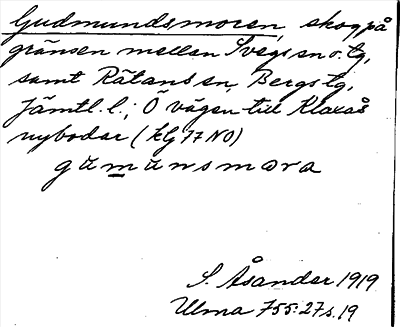 Gudmundsmoren, skog på
gränsen mellan Svegs sn o. tg,
samt Rätans sn, Bergs tg,
Jämtl. l.; Ö vägen till Klaxås
nybodar (kg 77 NO)
gumunsmora
S. Åsander 1919
Ulma 755:27 s. 19